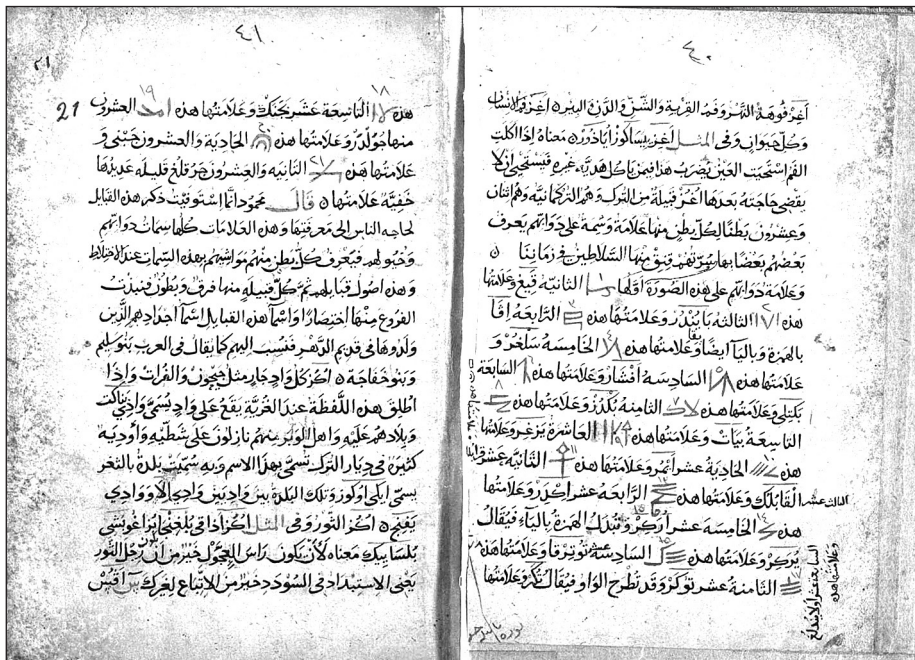 ٤٠
اغز فوهة النهر وفم القربة والشق والدن والبئر اغز فم الانسان
وكل حيوان وفي المثل اغز يسا كوز اياذور معناه اذا اكلت
الفم استحيت العين يضرب هذا فيمن ياكل هدية غيره فيستحيي ان لا
يقضي حاجته بعدها اغز قبيلة من الترك وهم التركمانية وهم اثنان
وعشرون بطنا لكل بطن منها علامة وسمة على دوابهم يعرف
بعضهم بعضا بها قنق منها السلاطين في زماننا
وعلامة دوابهم على هذه الصورة الثانية قيغ وعلامتها
هذه الثالثة بايندر وعلامتها هذه الرابعة اقا
بالهمزة وبالياء ايضا وعلامتها هذه الخامسة سلغر و
علامتها هذه السادسة افشار وعلامتها هذه السابعة
بكتلي وعلامتها هذه الثامنة بكدز وعلامتها هذه
التاسعة بيات وعلامتها هذه العاشرة يزغر وعلامتها
هذه الحادية عشر ايمر وعلامتها هذه الثانية عشر
القابلك وعلامتها هذه الرابعة عشر اكدر وعلامتها
الثالث عشر
هذه الخامسة عشر اركر وتبدل الهمزة بالياء فيقال
يركر وعلامتها هذه السادسة عشر توترقا وعلامتها هذه
الثامنة عشر توكر وقد تطرح الواو فيقال تكر وعلامتها
السابعة عشر اولايندلغ
وعلامتها هذه
٤١
21
هذه التاسعة عشر بجنك وعلامتها هذه العشرون
منها جولدر وعلامتها هذه الحادية والعشرون جبني و
علامتها هذه الثانية والعشرون جرقلغ قليلة عديدها
خفية علامتها قال محمود انما استوفيت ذكر هذه القبايل
لحاجة الناس الى معرفتها وهذه العلامات كلها سمات دوابهم
وخيولهم فيعرف كل بطن منهم مواشيهم بهذه السمات عند الاختلاط
وهذه اصول قبايلهم ثم كل قبيلة منها فرق وبطون فنبذت
الفروع منها اختصارا واسماء هذه القبايل اسماء اجدادهم الذين
ولدوها في قديم الدهر فنسب اليهم كما يقال في العرب بنو سليم
وبنو خفاجة اكز كل واد جار مثل جيحون والفرات واذا
اطلق هذه اللفظة عند الغزية يقع على واد يسمى وادي بناكت
وبلادهم عليه واهل الوبر منهم نازلون على شطيه واودية
كثيرة في ديار الترك تسمى بهذا الاسم وبه سميت بلدة بالثغر
يسمى ايكي اوكوز وتلك البلدة بين واديين وادي ايلا ووادي
يفنج اكز الثور وفي المثل اكز اذاقي بلغنجا بزاغو بشي
بلسا ييك معناه لان يكون راس العجول خير من ان يكون رجل الثور
يعني الاستبداد في السؤدد خير من الاتباع لغيرك اقبس